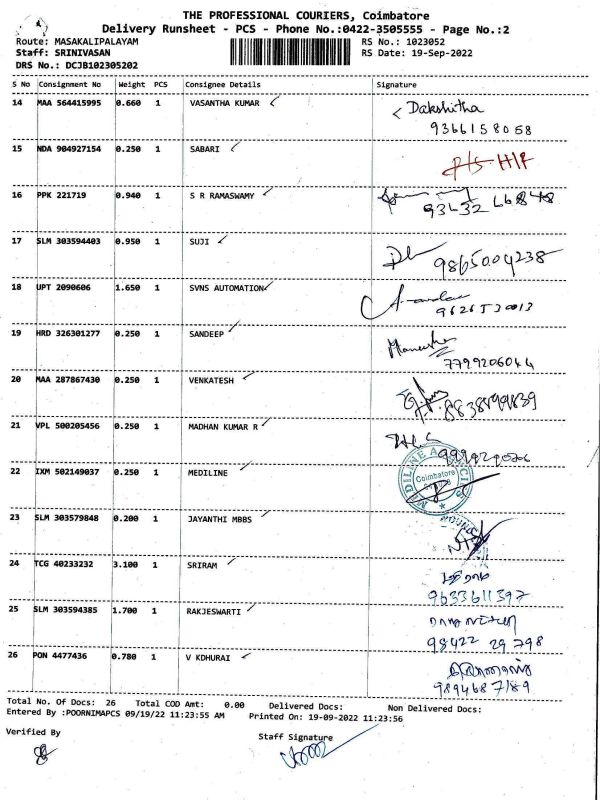 THE PROFESSIONAL COURIERS, Coimbatore
Delivery Runsheet - PCS - Phone No.:0422-3505555 - Page No.:2
Route: MASAKALIPALAYAM RS No.: 1023052
Staff: SRINIVASAN RS Date: 19-Sep-2022
DRS No.: DCJB102305202
S No Consignment No Weight PCS Consignee Details Signature
14 MAA 564415995 0.660 1 VASANTHA KUMAR Dakshitha
9366158058
15 NDA 904927154 0.250 1 SABARI
16 PPK 221719 0.940 1 S R RAMASWAMY
17 SLM 303594403 0.950 1 SUJI
9865004238
18 UPT 2090606 1.650 1 SVNS AUTOMATION
19 HRD 326301277 0.250 1 SANDEEP
7799206044
20 MAA 287867430 0.250 1 VENKATESH
21 VPL 500205456 0.250 1 MADHAN KUMAR R
22 IXM 502149037 0.250 1 MEDILINE
MEDILINE AGENCIES
Coimbatore
23 SLM 303579848 0.200 1 JAYANTHI MBBS
24 TCG 40233232 3.100 1 SRIRAM
9633611397
25 SLM 303594385 1.700 1 RAKJESWARTI
98422 29798
26 PON 4477436 0.780 1 V KDHURAI
9894687189
Total No. Of Docs: 26 Total COD Amt: 0.00 Delivered Docs: Non Delivered Docs:
Entered By :POORNIMAPCS 09/19/22 11:23:55 AM Printed On: 19-09-2022 11:23:56
Verified By Staff Signature